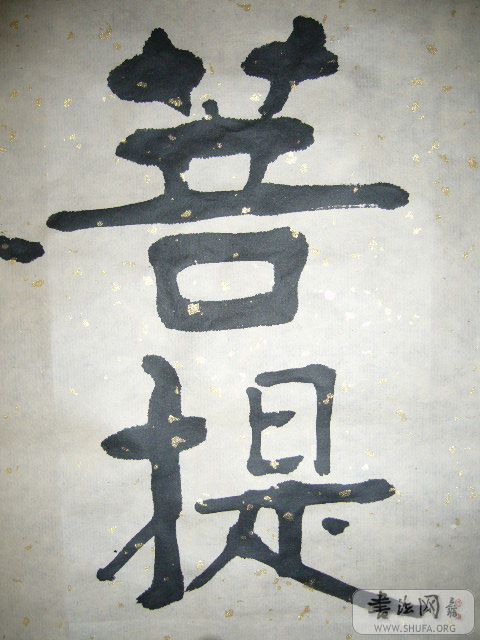 菩
提
书法网
WWW.SHUFA.ORG